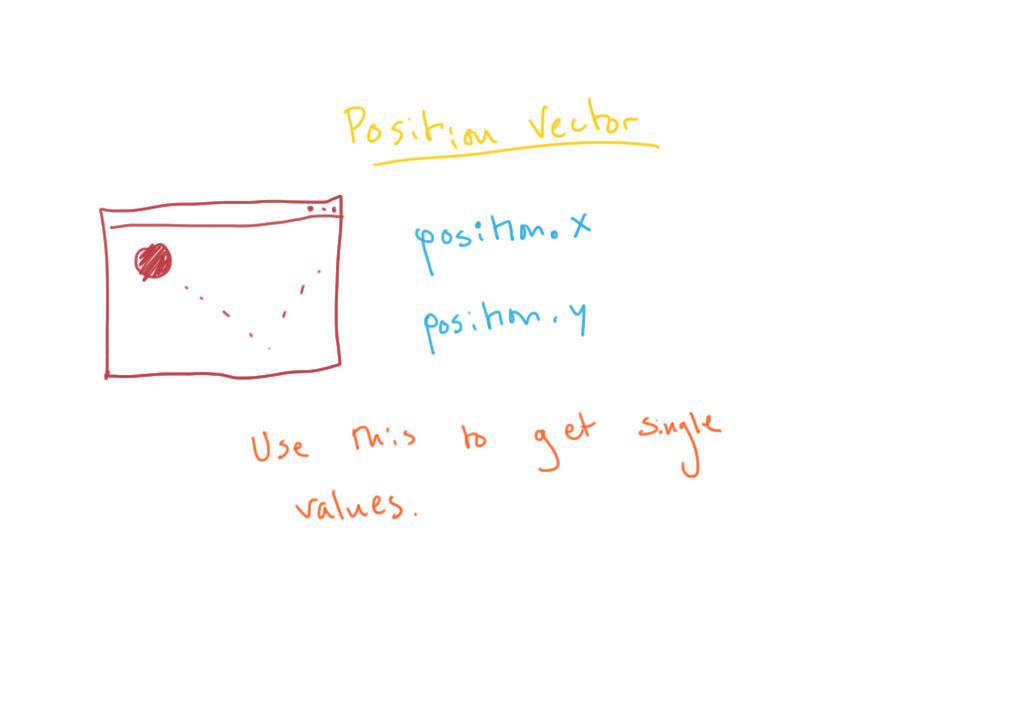 Position Vector
position.x
position.y
Use this to get single
values.